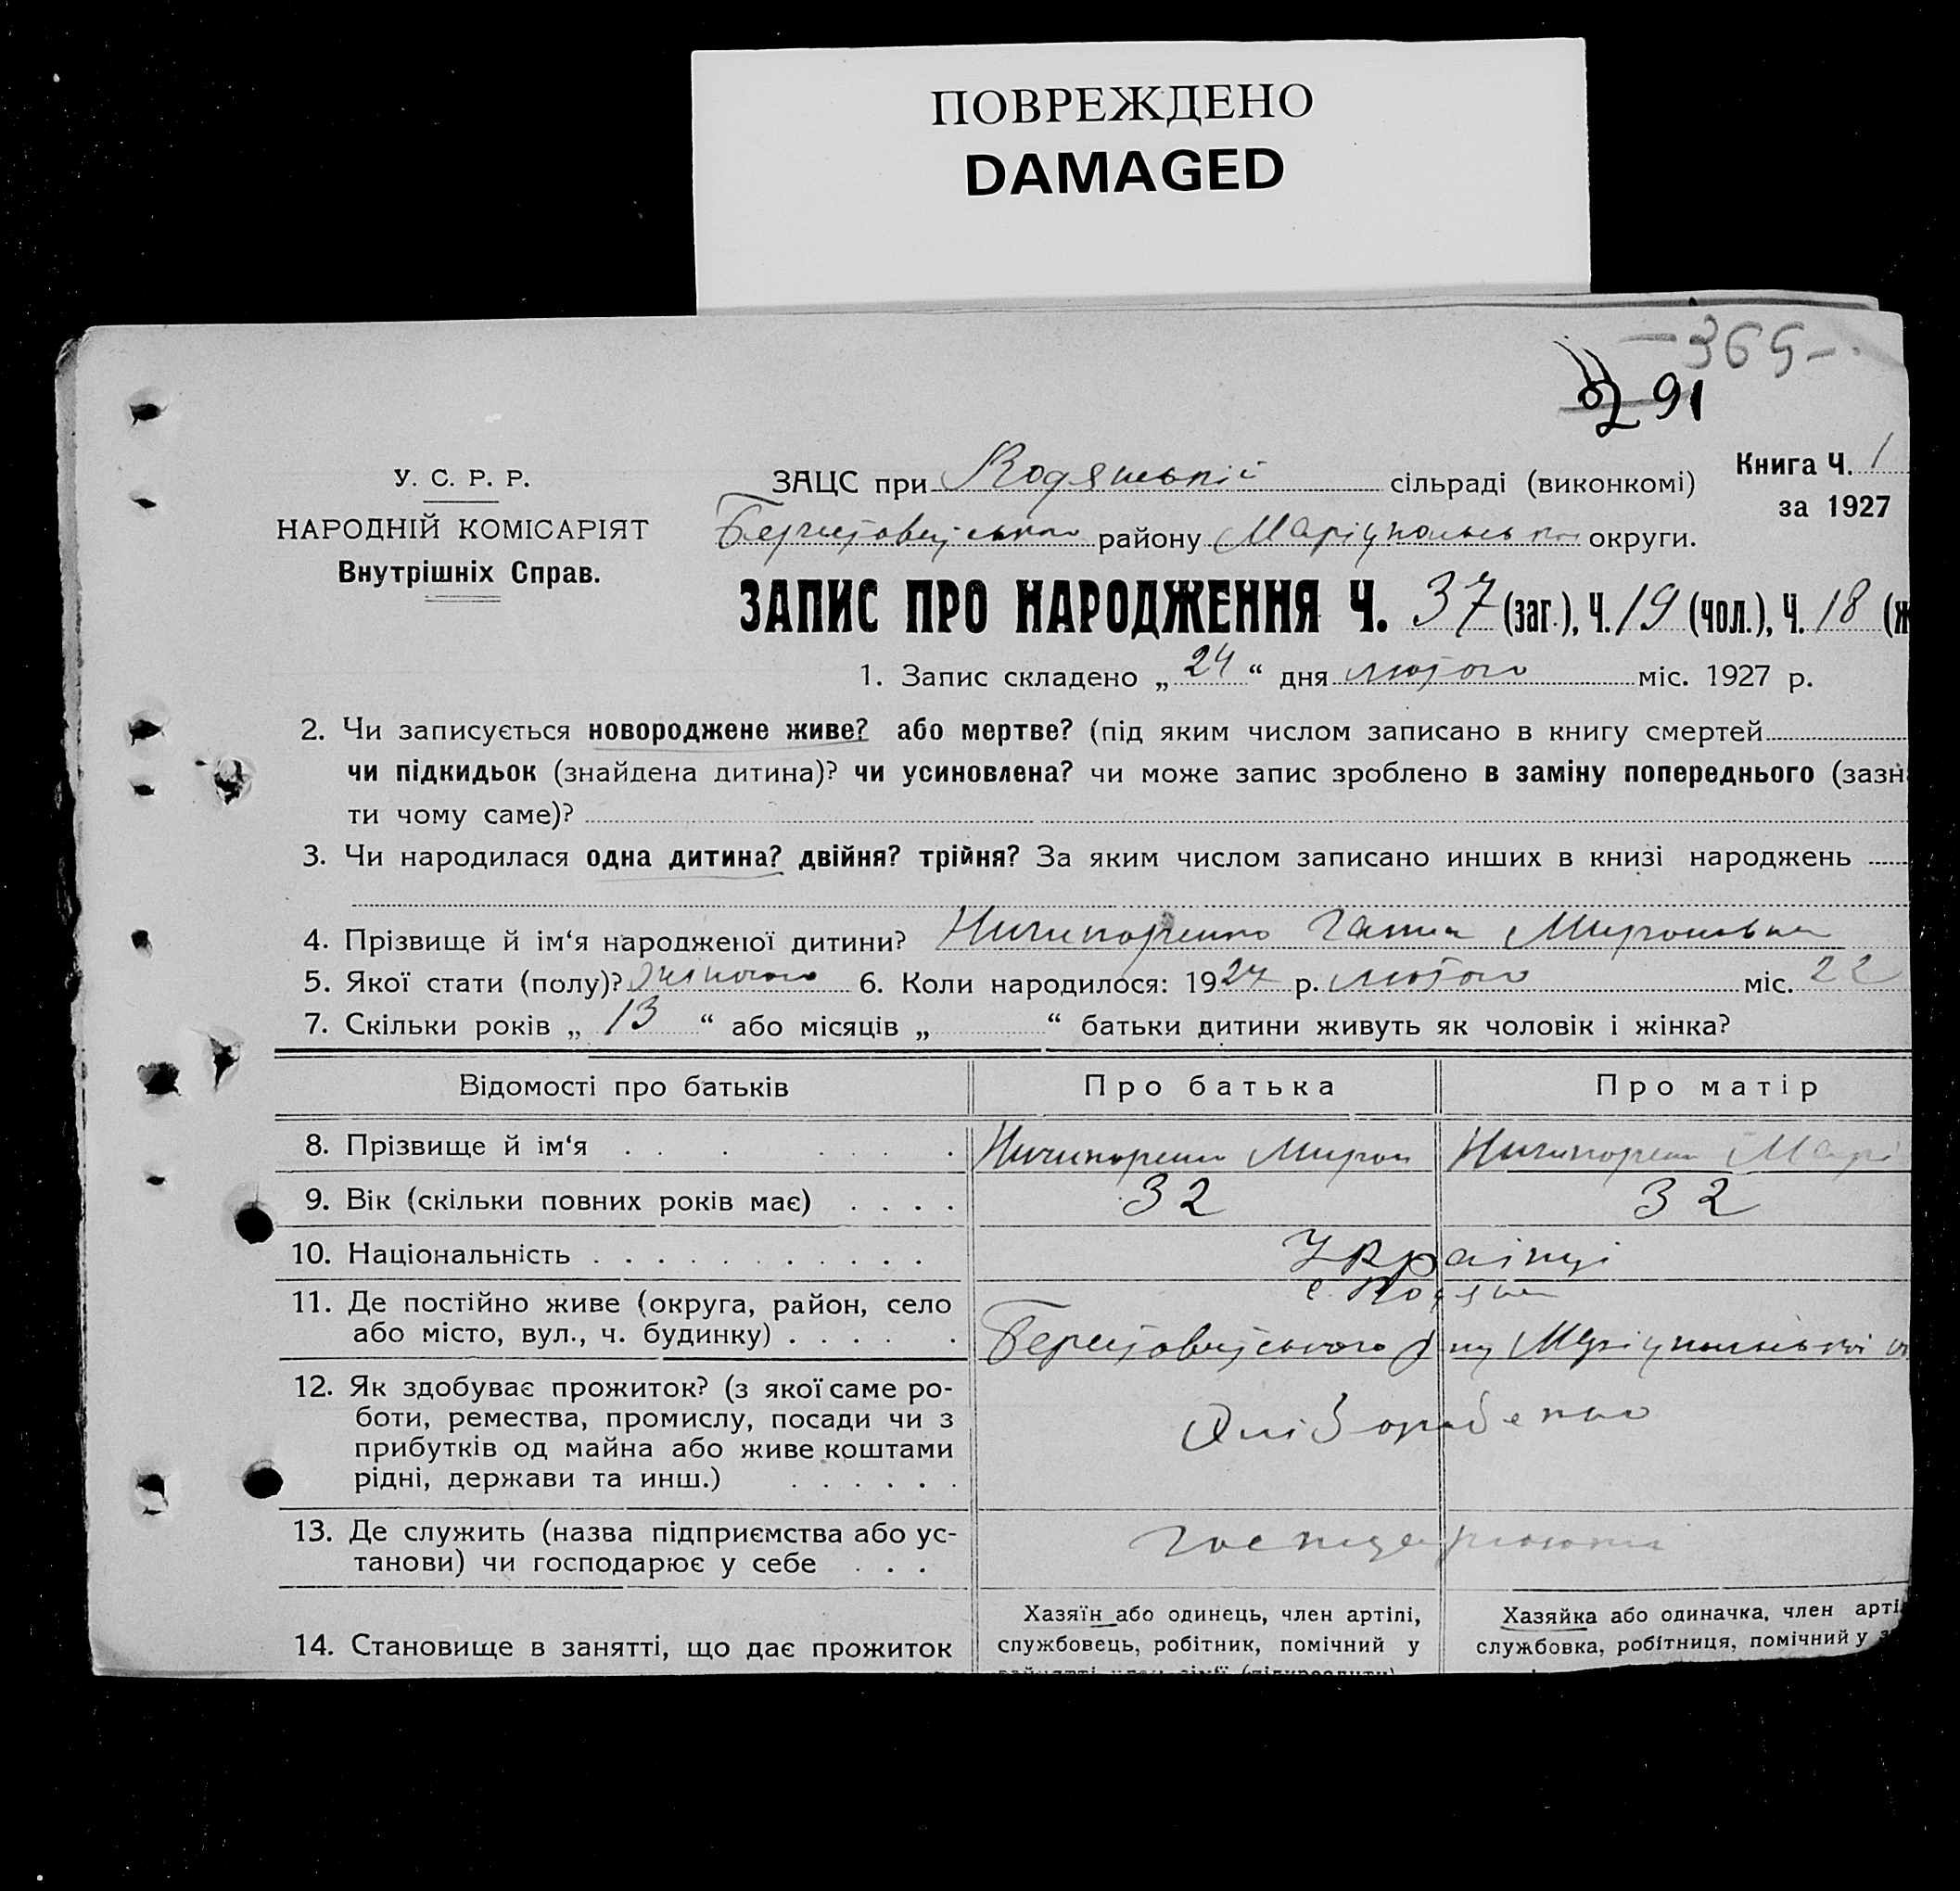 ПОВРЕЖДЕНО
DAMAGED
— 365 —
91
У. С. Р. Р.
НАРОДНІЙ КОМІСАРІЯТ
Внутрішніх Справ.
ЗАЦС при Водянській сільраді (виконкомі)
Книга Ч. 1
за 1927
Берестовецького району Маріупольської округи.
ЗАПИС ПРО НАРОДЖЕННЯ Ч. 37 (заг.), Ч. 19 (чол.), Ч. 18 (ж
1. Запис складено „ 24 “ дня лютого міс. 1927 р.
2. Чи записується новороджене живе? або мертве? (під яким числом записано в книгу смертей
чи підкидьок (знайдена дитина)? чи усиновлена? чи може запис зроблено в заміну попереднього (зазн
ти чому саме)?
3. Чи народилася одна дитина? двійня? трійня? За яким числом записано инших в книзі народжень
4. Прізвище й ім‘я народженої дитини? Ничипоренко Ганна Миронівна
5. Якої стати (полу)? жіночого 6. Коли народилося: 1927 р. лютого міс. 22
7. Скільки років „ 13 “ або місяців „ “ батьки дитини живуть як чоловік і жінка?
Відомості про батьків Про батька Про матір
8. Прізвище й ім‘я Ничипоренко Мирон Ничипоренко Марі
9. Вік (скільки повних років має) 32 32
10. Національність Українці
11. Де постійно живе (округа, район, село с. Водяна
або місто, вул., ч. будинку) Берестовецького р-ну Маріупольської
12. Як здобуває прожиток? (з якої саме ро-
боти, ремества, промислу, посади чи з Хліборобство
прибутків од майна або живе коштами
рідні, держави та инш.)
13. Де служить (назва підприємства або ус-
танови) чи господарює у себе
Хазяїн або одинець, член артілі, Хазяйка або одиначка, член арті
14. Становище в занятті, що дає прожиток службовець, робітник, помічний у службовка, робітниця, помічний у з